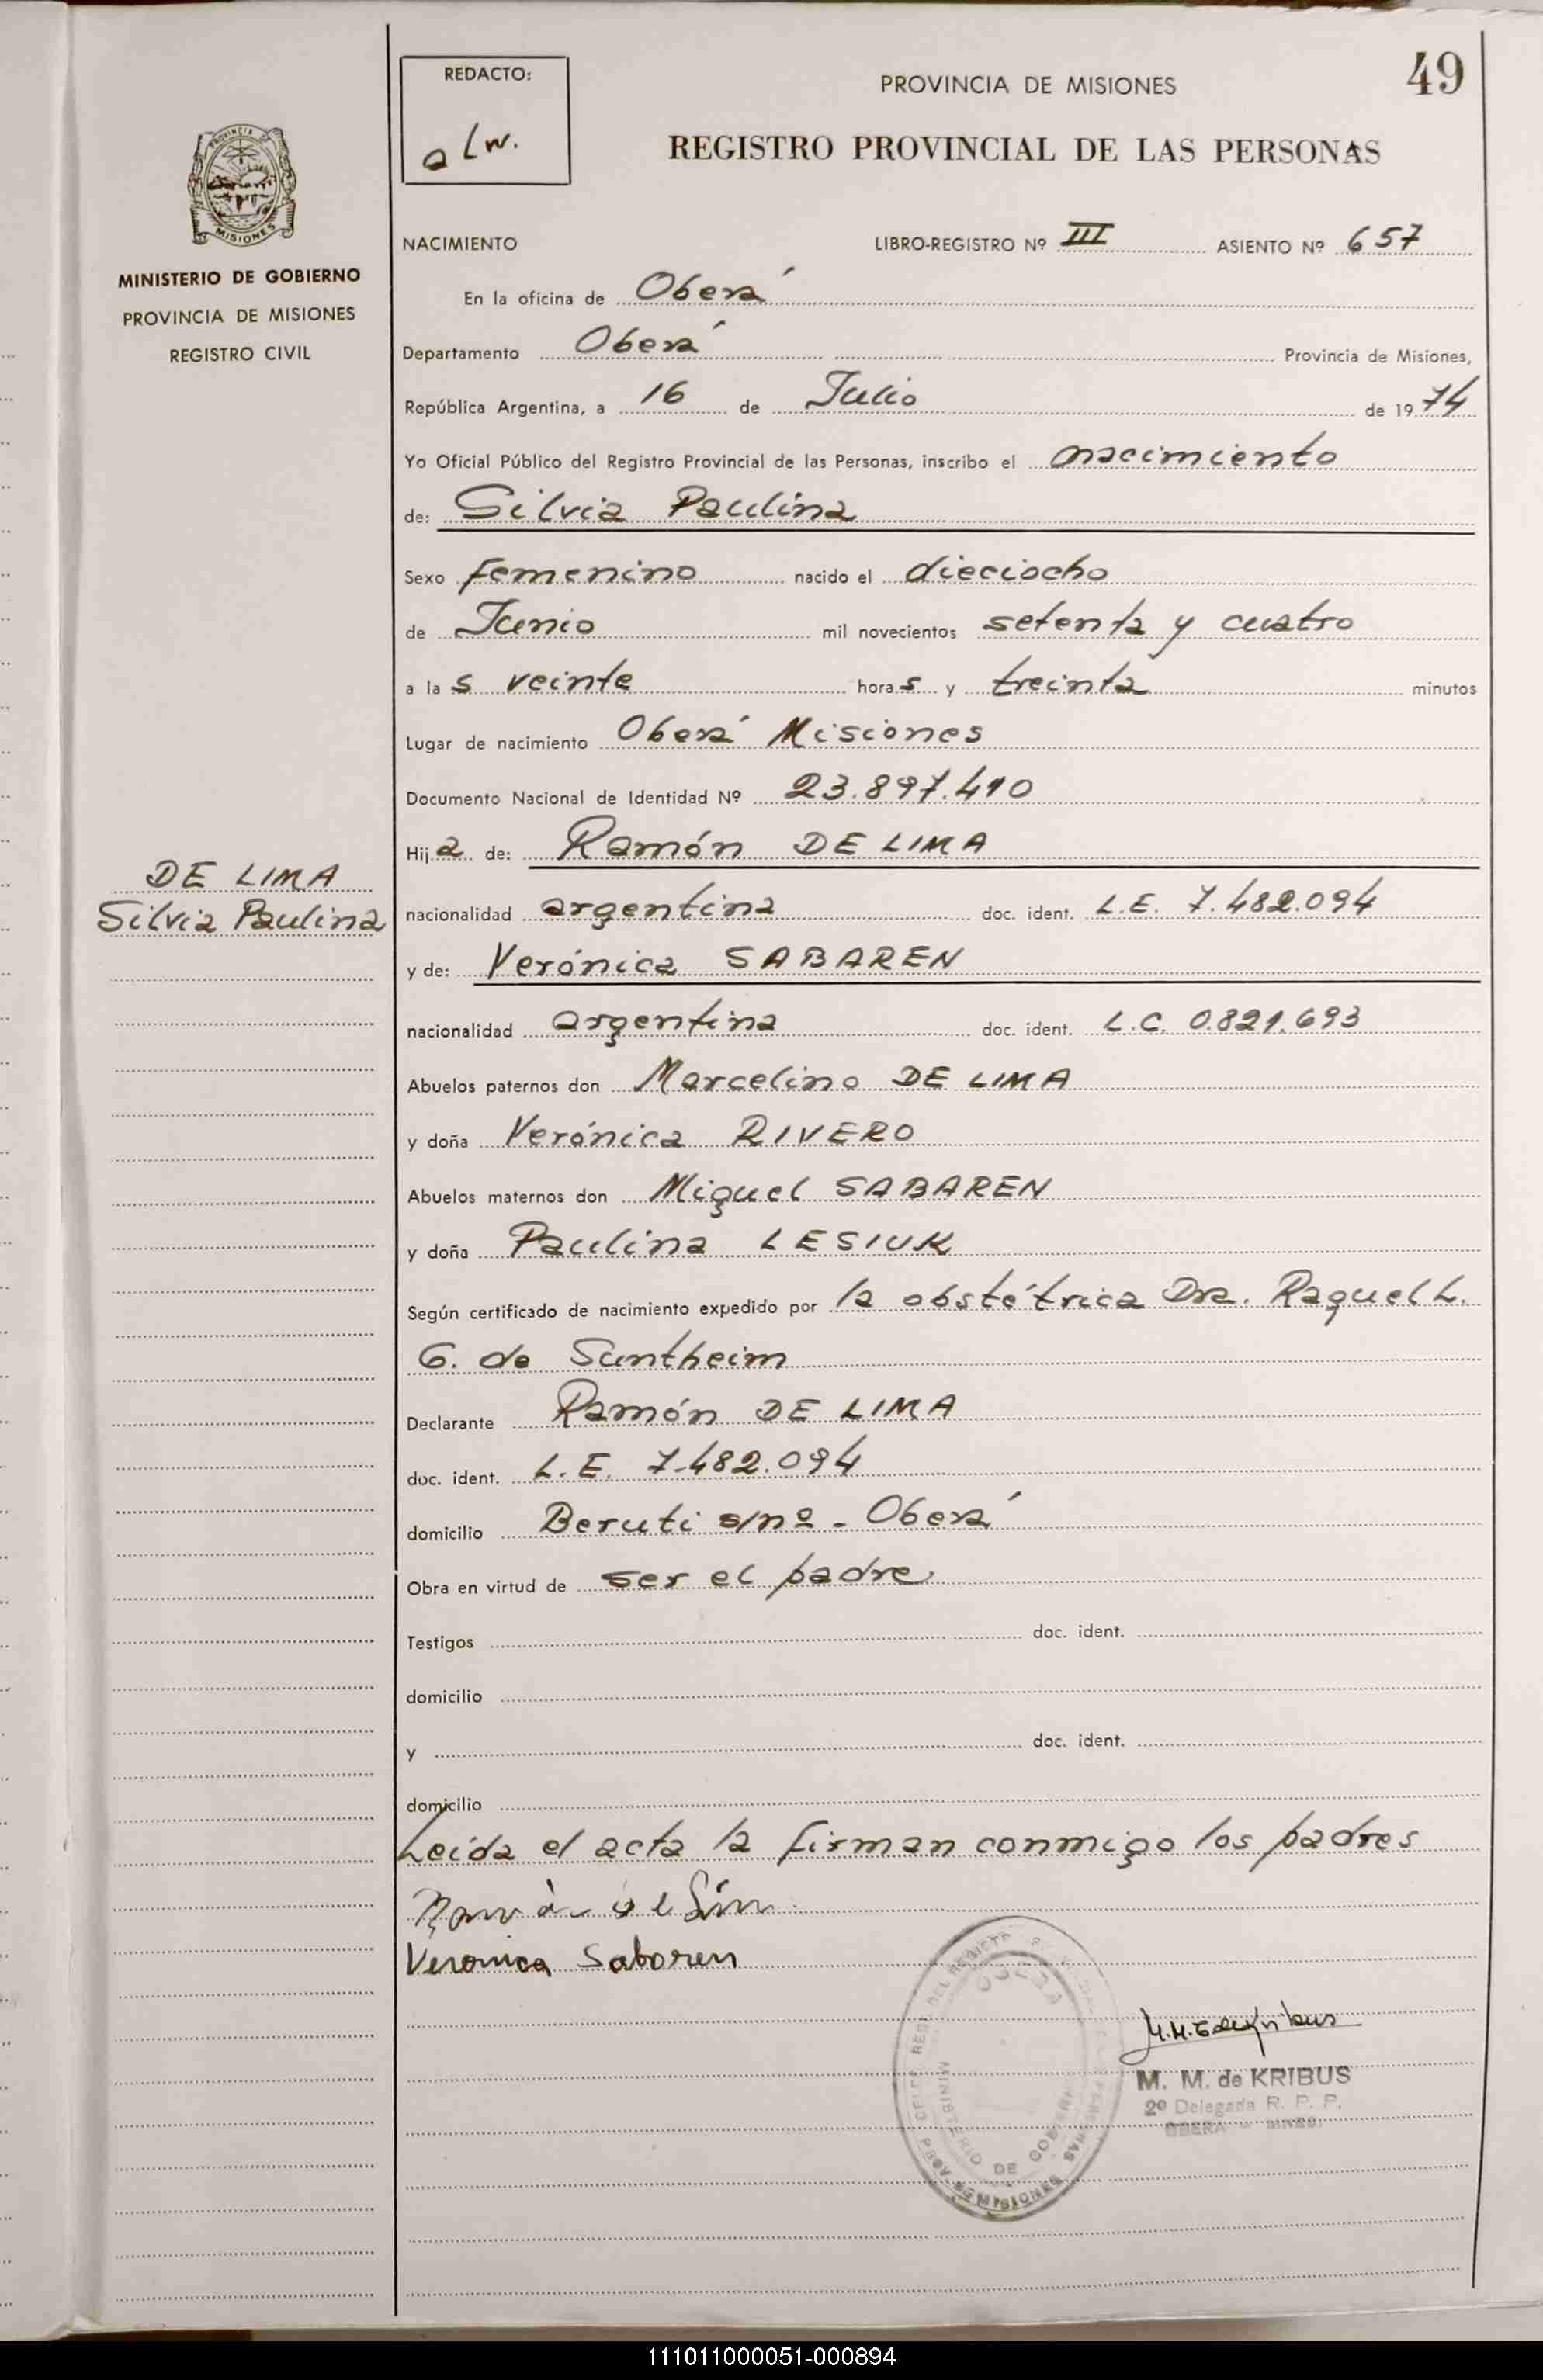 49
REDACTO:
PROVINCIA DE MISIONES
REGISTRO PROVINCIAL DE LAS PERSONAS
MISIONES
MINISTERIO DE GOBIERNO
PROVINCIA DE MISIONES
REGISTRO CIVIL
NACIMIENTO LIBRO-REGISTRO Nº III ASIENTO Nº 657
En la oficina de Oberá
Departamento Oberá Provincia de Misiones,
República Argentina, a 16 de Julio de 1974
Yo Oficial Público del Registro Provincial de las Personas, inscribo el nacimiento
de: Silvia Paulina
Sexo femenino nacido el dieciocho
de Junio mil novecientos setenta y cuatro
a las veinte horas y treinta minutos
Lugar de nacimiento Oberá Misiones
Documento Nacional de Identidad Nº 23.897.410
Hija de: Ramón DE LIMA
DE LIMA
Silvia Paulina
nacionalidad argentina doc. ident. L.E. 7.482.094
y de: Verónica SABAREN
nacionalidad argentina doc. ident. L.C. 0.821.693
Abuelos paternos don Marcelino DE LIMA
y doña Verónica RIVERO
Abuelos maternos don Miguel SABAREN
y doña Paulina LESIUK
Según certificado de nacimiento expedido por la obstétrica Dra. Raquel L.
G. de Suntheim
Declarante Ramón DE LIMA
doc. ident. L.E. 7.482.094
domicilio Beruti s/nº - Oberá
Obra en virtud de ser el padre
Testigos doc. ident.
domicilio
y doc. ident.
domicilio
Leída el acta la firman conmigo los padres
Veronica Saboren
M. M. de KRIBUS
2º Delegada R. P. P.
OBERA - MNES.
MINISTERIO DE GOBIERNO
PROV. DE MISIONES
111011000051-000894